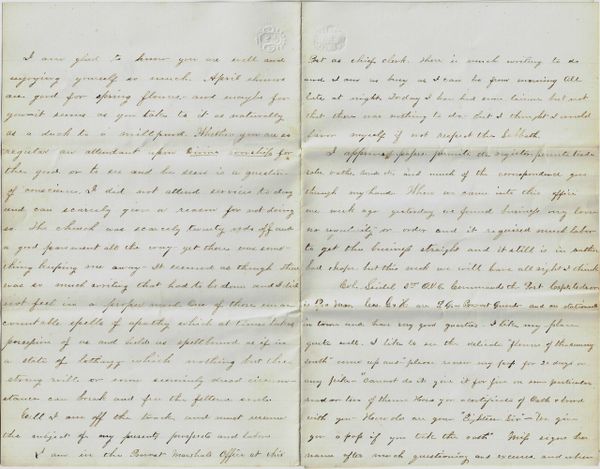 I am glad to know you are well and
enjoying yourself so much. April showers
are good for spring flowers and maybe for
you it seems as you take to it as naturally
as a duck to a millpond. Whether you are so
regular an attendant upon Divine worship for
the good or to see and be seen is a question
of conscience. I did not attend services to day
and can scarcely give a reason for not doing
so. The church was scarcely twenty rods off and
a good pavement all the way yet there was some-
thing keeping me away. It seemed as though there
was so much writing that had to be done and I did
not feel in a proper mood. One of those unac-
countable spells of apathy which at times takes
possession of us and holds us spellbound as if in
a state of lethargy which nothing but the
strong will or some seemingly direct circum-
stance can break and free the fettered soul.
Well I am off the track and must resume
the subject of my present prospects and labors
I am in the Provost Marshals Office at this
Post as chief clerk. There is much writing to do
and I am as busy as I can be from morning till
late at night. To day I have had some leisure but not
that there was nothing to do but I thought I would
favor myself if not respect the Sabbath.
I approve papers, permits, do register permits
rate oaths and it, and much of the correspondence goes
through my hand. When we came into this office
one week ago yesterday we found business very loose
no regularity or order and it required much labor
to get the business straight and it still is in rather
bad shape but this week we will have all right I think
Col. Commands the Post Capt.
is Pro Mar. Cos. G & K are Provost Guards and are stationed
in town and have very good quarters. I like my place
quite well. I like to see the delicate "flowers of the sunny
south" come up and "please renew my pass for 20 days or
any
one or two of them. Have you a certificate of Oath + bond
with you. How old are you "Eighteen Sir" - We give
you a pass if you take the oath" Miss signs her
name after much questioning and excuses, and when